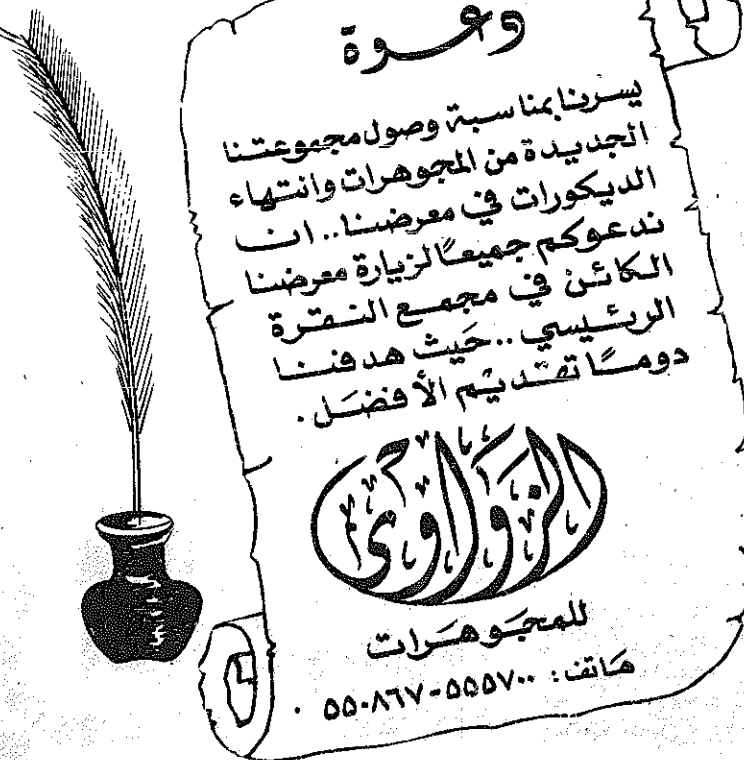 دعوة
يسرنا بمناسبة وصول مجموعتنا
الجديدة من المجوهرات وانتهاء
الديكورات في معرضنا.. ان
ندعوكم جميعًا لزيارة معرضنا
الكائن في مجمع النقرة
الرئيسي.. حيث هدفنا
دومًا تقديم الأفضل.
الزواوي
للمجوهرات
هاتف: ٥٥٥٧٠٠-٥٥٠٨٦٧